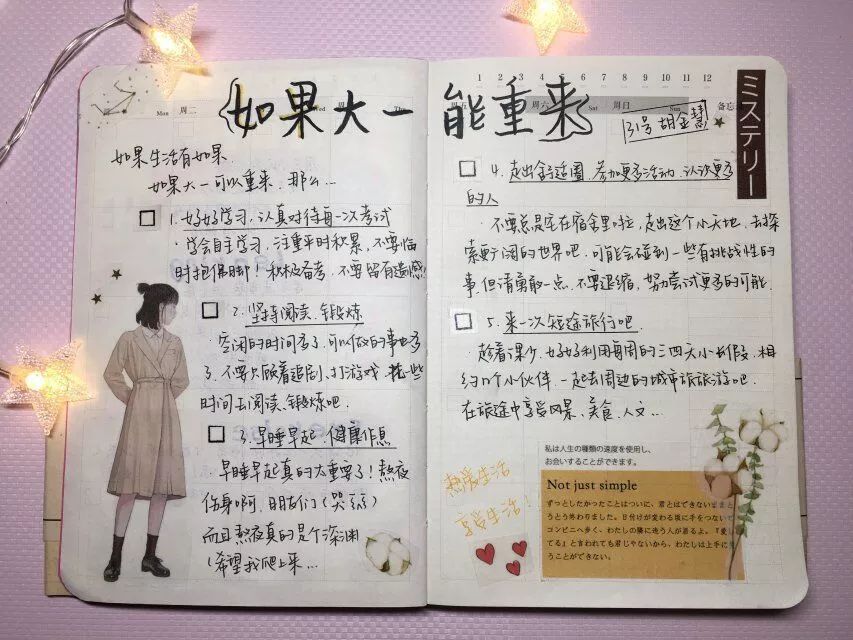 如果大一能重来
31号 胡金慧
如果生活有如果
如果大一可以重来、那么...
1. 好好学习、认真对待每一次考试
·学会自主学习,注重平时积累,不要临
时抱佛脚!积极备考,不要留有遗憾
2. 坚持阅读、锻炼
·空闲的时间多了,可以做的事也多
了、不要只顾着追剧、打游戏、花一些
时间去阅读、锻炼吧.
3. 早睡早起、健康作息
早睡早起真的太重要了!熬夜
伤身啊,朋友们(哭
而且熬夜真的是个深渊
(希望我爬上来...
1 2 3 4 5 6 7 8 9 10 11 12
Mon 周二 Wed 周 Thu 周五 周六 Sat 周日 Sun 备忘
ミステリー
4. 走出舒适圈、参加更多活动、认识更多
的人
·不要总是宅在宿舍里啦,走出这个小天地、去探
索更广阔的世界吧、可能会碰到一些有挑战性的
事、但请勇敢一点、不要退缩,努力尝试更多的可能.
5. 来一次短途旅行吧
·趁着课少、好好利用每周的三四天小长假、相
约几个小伙伴、一起去周边的城市旅旅游吧.
在旅途中享受风景、美食、人文...
热爱生活
享受生活!
私は人生の種類の速度を使用し、
お会いすることができます。
Not just simple
ずっとしたかったことはついに、君とはできないままと
うとう終わりました。日付けが変わる頃に手をつないで
コンビニへ歩く、わたしの隣に違う人が居るよ。『愛し
てる』と言われても君じゃないから、わたしは上手に
うことができない。